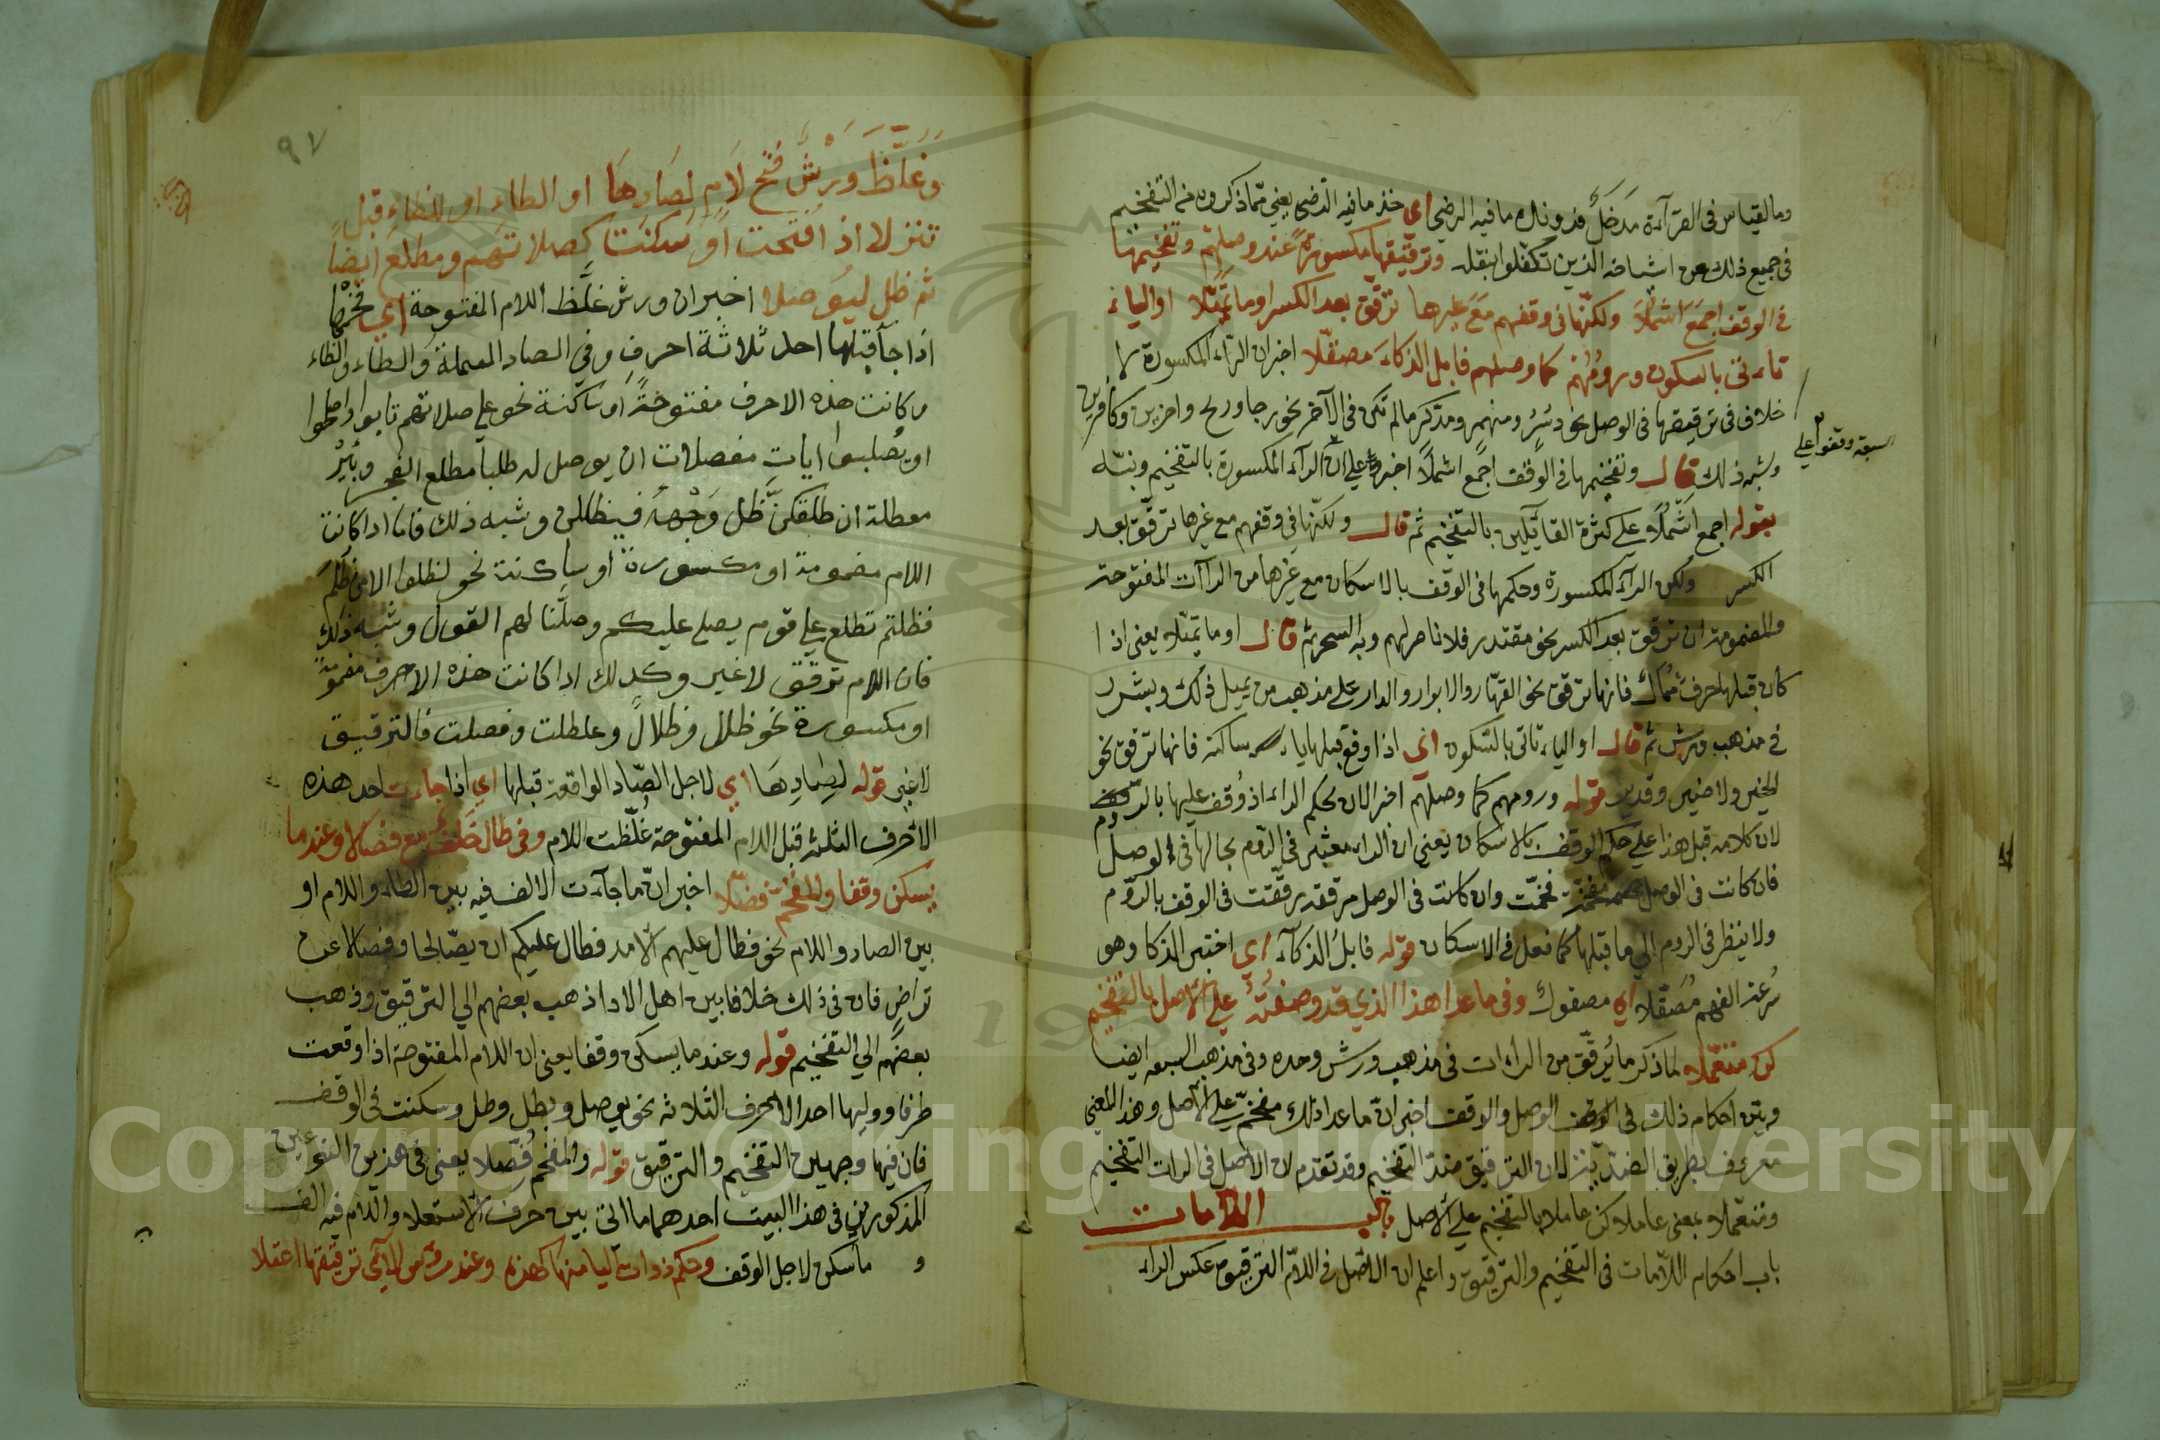 وما لقياس في القرآءة مدخل فدونك ما فيه الرضي اي خذ ما فيه الرضى يعني مما ذكروه في التفخيم
في جميع ذلك عن اشياخه الذين تكفلوا بنقله وترقيقها مكسورة عند وصلهم وتفخيمها
في الوقف اجمع اشملا ولكنها في وقفهم مع غيرها ترقق بعد الكسر او ما تميلا او الياء
تاءتي بالسكون ورومهم كما وصلهم فابل الذكاء مصقلا اخبر ان الراء المكسورة لا
خلاف في ترقيقها في الوصل نحو دسر ومنهمر ومدكر ما لم تكن في الآخر نحو رجا وريح واخرين وكافرين
وشبه ذلك قال وتفخيمها في الوقف اجمع اشملا اخبر علي ان الراء المكسورة بالتفخيم ونبه
السبعة وقفوا علي
بقوله اجمع اشملا علي كثرة القائلين بالتفخيم ثم قال ولكنها في وقفهم مع غيرها ترقق بعد
الكسر ولكن الراء المكسورة وحكمها في الوقف بالاسكان مع غيرها من الراآت المفتوحة
والمضمومة ان ترقق بعد الكسر نحو مقتدر فلا ناصر لهم وبه السحر ثم قال او ما تميلا يعني اذا
كان قبلها حرف ممال فانها ترقق نحو القهار والابرار والدار علي مذهب من يميل ذلك وبشرر
في مذهب ورش ثم قال او الياء تاتي بالسكون اي اذا وقع قبلها ياء ساكنة فانها ترقق نحو
الخير ولا ضير وقدير قوله ورومهم كما وصلهم اخبر الان بحكم الراء اذ وقف عليها بالروم
لان كلامه قبل هذا علي حكم الوقف بالاسكان يعني ان الراء معتبر في الروم بحالها في الوصل
فان كانت في الوصل مفخمة فخمت وان كانت في الوصل مرققة رققت في الوقف بالروم
ولا ينظر في الروم الي ما قبلها كما نفعل في الاسكان قوله فابل الذكآء اي اختبر الذكا وهو
سرعة الفهم مصقلا اي مصقولا وفي ما عدا هذا الذي قد وصفته علي الاصل بالتفخيم
كن متعملا لما ذكر ما يرقق من الراءات في مذهب ورش وحده وفي مذهب السبعه ايضا
وبين احكام ذلك في الوصل والوقف اخبر ان ما عدا ذلك مفخم علي الاصل وهذا المعني
معروف بطريق الضد لان الترقيق ضد التفخيم وقد تقدم لان الاصل في الراات التفخيم
ومتعملا بمعني عاملا كن عاملا بالتفخيم علي الاصل باب اللامات
باب احكام اللامات في التفخيم والترقيق واعلم ان الاصل في اللام الترقيق عكس الراء
٩٧
وغلظ ورش فتح لام لصادها او الطاء او للظاء قبل
تنزلا اذ افتحت او سكنت كصلاتهم ومطلع ايضا
ثم ظل ليوصلا اخبر ان ورش غلظ اللام المفتوحة اي فخمها
اذا جآ قبلها احد ثلاثة احرف وفي الصاد المهملة والطاء والظاء
وكانت هذه الاحرف مفتوحة او ساكنة نحو علي صلاتهم تابوا واصلحوا
او يصلبوا ايات مفصلات ان يوصل له طلبا مطلع الفجر وبئر
معطلة ان طلقكن ظل وجهه فيظللن وشبه ذلك فاما اذا كانت
اللام مضمومة او مكسورة او ساكنة نحو لظلوا الا من ظلم
فظلتم تطلع علي قوم يصلي عليكم وصلنا لهم القول وشبه ذلك
فان اللام ترقق لا غير وكذلك اذا كانت هذه الاحرف مضمومة
او مكسورة نحو ظلل وظلال وعطلت وفصلت فالترقيق
لا غير قوله لصادها اي لاجل الصاد الواقعة قبلها اي اذا جاءت احد هذه
الاحرف الثلثة قبل اللام المفتوحة غلظت اللام وفي طال خلف مع فصالا وعندما
يسكن وقفا والمفخم فضلا اخبر ان ما جآءت الالف فيه بين الطاء واللام او
بين الصاد واللام نحو فطال عليهم الامد فطال عليكم ان يصالحا وفصالا عن
تراض فان في ذلك خلافا بين اهل الادا ذهب بعضهم الي الترقيق وذهب
بعضهم الي التفخيم قوله وعندما يسكن وقفا يعني ان اللام المفتوحة اذا وقعت
طرفا ووليها احد الاحرف الثلاثة نحو يوصل وبطل وظل وسكنت في الوقف
فان فيها وجهين التفخيم والترقيق قوله والمفخم فضلا يعني في هذين النوعين
المذكورين في هذا البيت احدهما ما اتي بين حرف الاستعلا واللام فيه الف
و ما سكن لاجل الوقف وحكم ذوات اليا منها كهذه وعند رؤس الآي ترقيقها اعتلا
Copyright © King Saud University